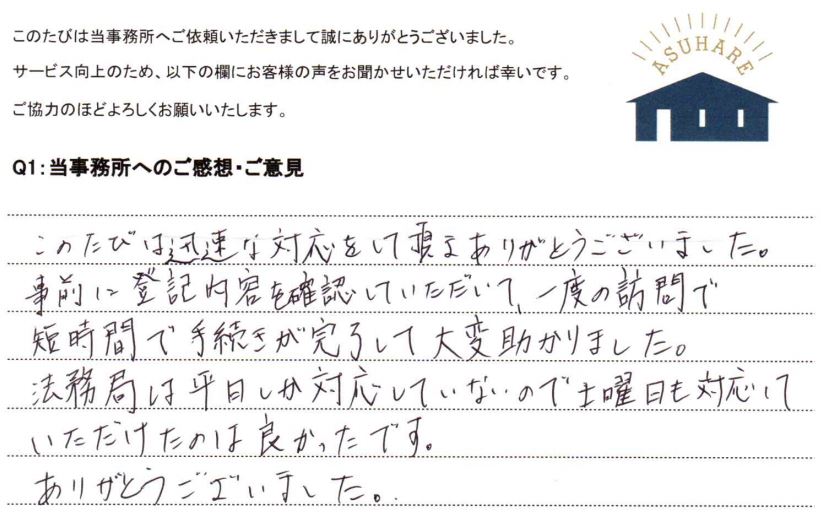 このたびは当事務所へご依頼いただきまして誠にありがとうございました。
サービス向上のため、以下の欄にお客様の声をお聞かせいただければ幸いです。
ご協力のほどよろしくお願いいたします。
ASUHARE
Q1:当事務所へのご感想・ご意見
このたびは迅速な対応をして頂きありがとうございました。
事前に登記内容を確認していただいて、一度の訪問で
短時間で手続きが完了して大変助かりました。
法務局は平日しか対応していないので土曜日も対応して
いただけたのは良かったです。
ありがとうございました。